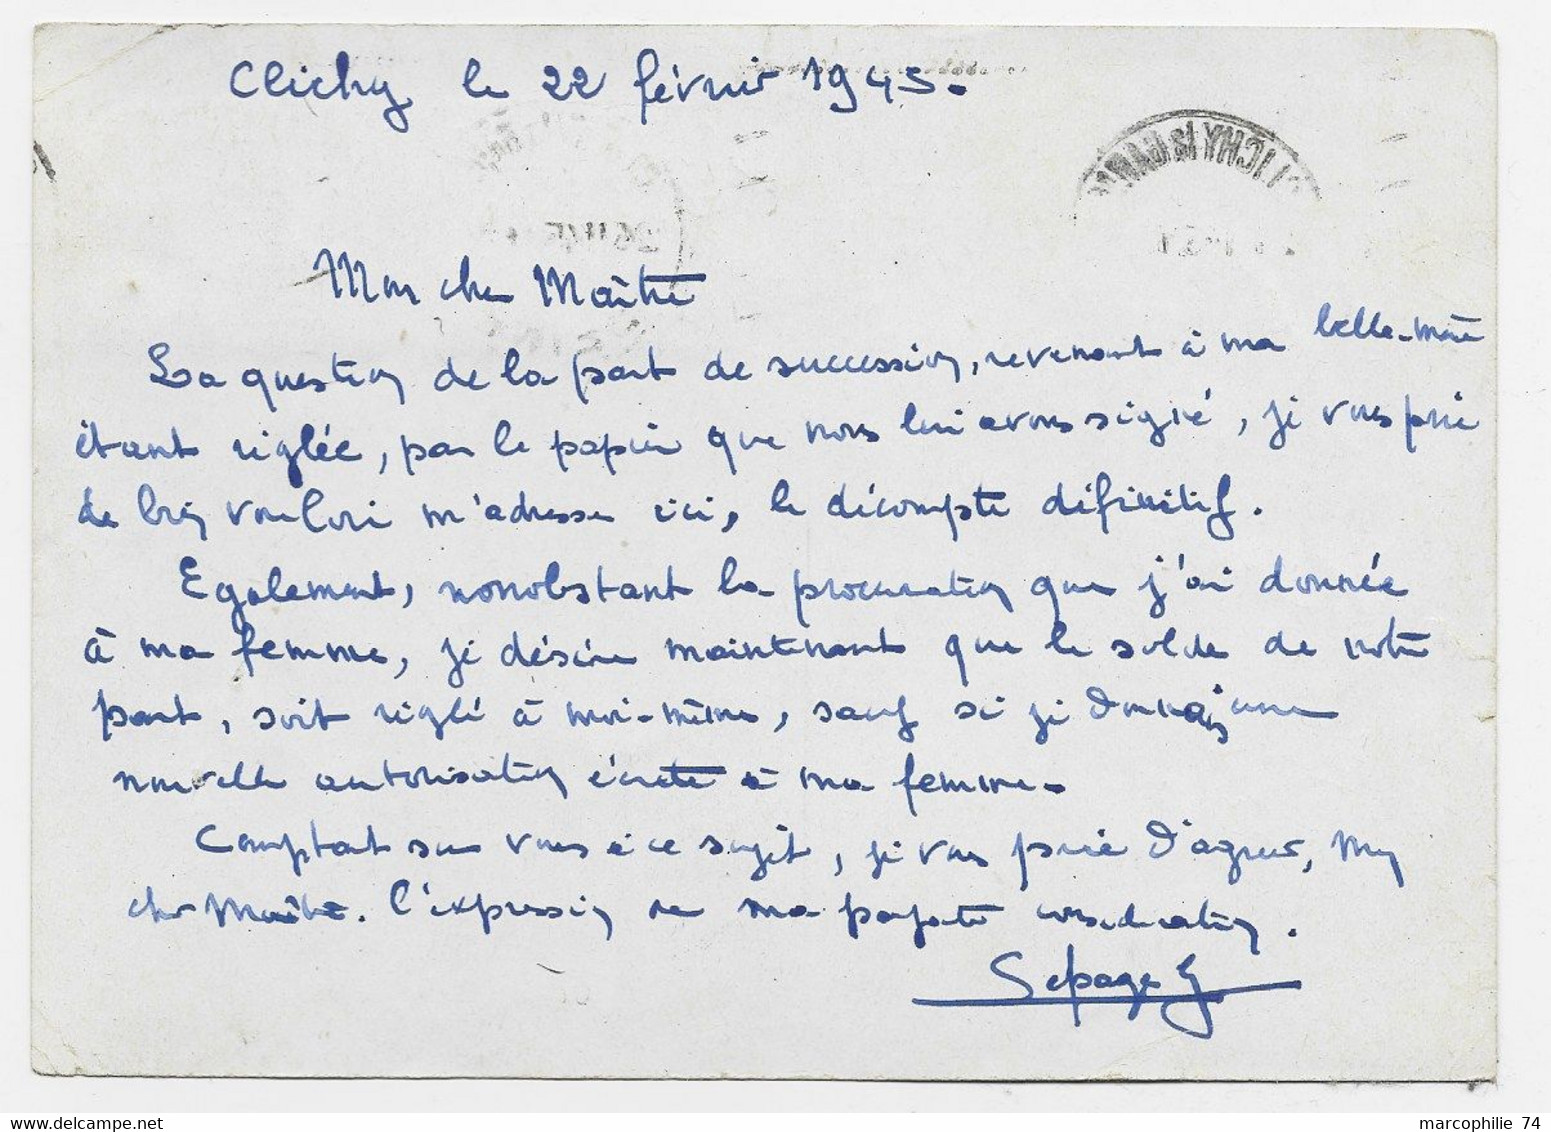 Clichy le 22 février 1945.
CLICHY
Mon cher Maître
La question de la part de succession, revenant à ma belle-mère
étant réglée, par le papier que nous lui avons signé, je vous prie
de bien vouloir m'adresser ici, le décompte définitif.
Egalement, nonobstant la procuration que j'ai donnée
à ma femme, je désire maintenant que le solde de notre
part, soit réglé à moi-même, sauf si je donnais une
nouvelle autorisation écrite à ma femme.
Comptant sur vous à ce sujet, je vous prie d'agréer, Mon
cher Maître. l'expression de ma parfaite considération.
Sepage G
marcophilie 74